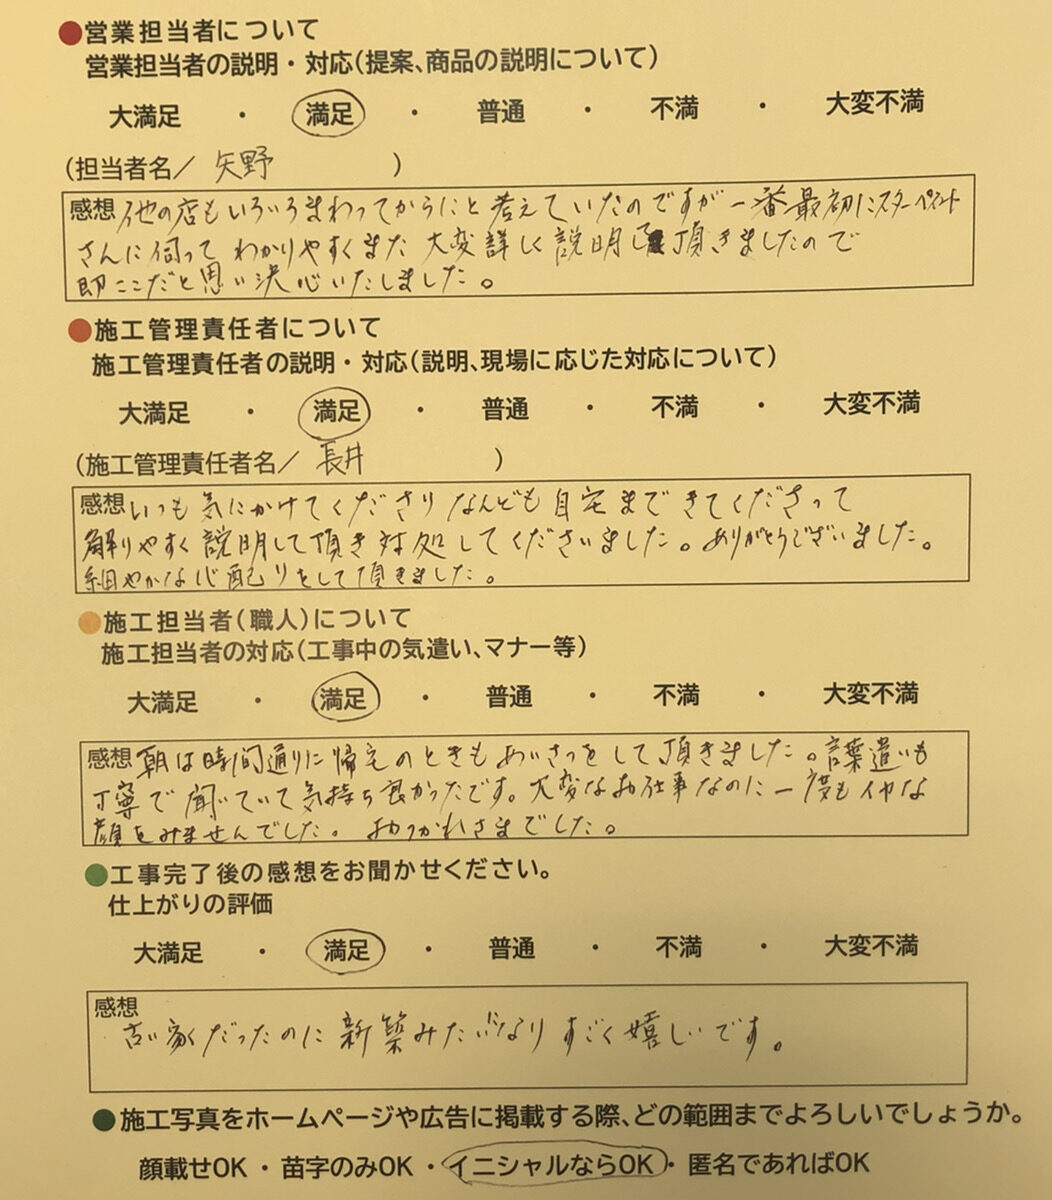 ●営業担当者について
営業担当者の説明・対応(提案、商品の説明について)
大満足 ・ 満足 ・ 普通 ・ 不満 ・ 大変不満
(担当者名/ 矢野 )
感想 他の店もいろいろまわってからにと考えていたのですが一番最初にスターペイント
さんに伺ってわかりやすくまた大変詳しく説明して頂きましたので
即ここだと思い決心いたしました。
●施工管理責任者について
施工管理責任者の説明・対応(説明、現場に応じた対応について)
大満足 ・ 満足 ・ 普通 ・ 不満 ・ 大変不満
(施工管理責任者名/ 長井 )
感想 いつも気にかけてくださりなんども自宅まできてくださって
解りやすく説明して頂き対処してくださいました。ありがとうございました。
細やかな心配りをして頂きました。
●施工担当者(職人)について
施工担当者の対応(工事中の気遣い、マナー等)
大満足 ・ 満足 ・ 普通 ・ 不満 ・ 大変不満
感想 朝は時間通りに帰宅のときもあいさつをして頂きました。言葉遣いも
丁寧で聞いていて気持ち良かったです。大変なお仕事なのに一度もイヤな
顔をみませんでした。おつかれさまでした。
●工事完了後の感想をお聞かせください。
仕上がりの評価
大満足 ・ 満足 ・ 普通 ・ 不満 ・ 大変不満
感想
古い家だったのに新築みたいになりすごく嬉しいです。
●施工写真をホームページや広告に掲載する際、どの範囲までよろしいでしょうか。
顔載せOK ・ 苗字のみOK ・ イニシャルならOK ・ 匿名であればOK